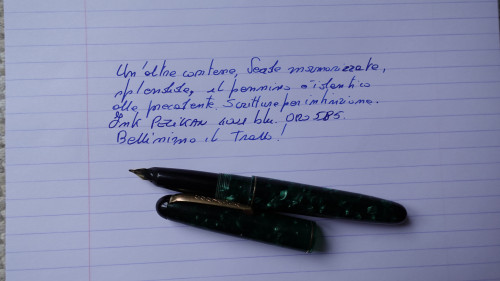 Un'altra canterea, Seste marmorizzata,
splendida, il pennino è identico
alla precedente. Scrittura per intinzione.
Ink PELIKAN blu. ORO 585.
Bellissimo il Tratto!